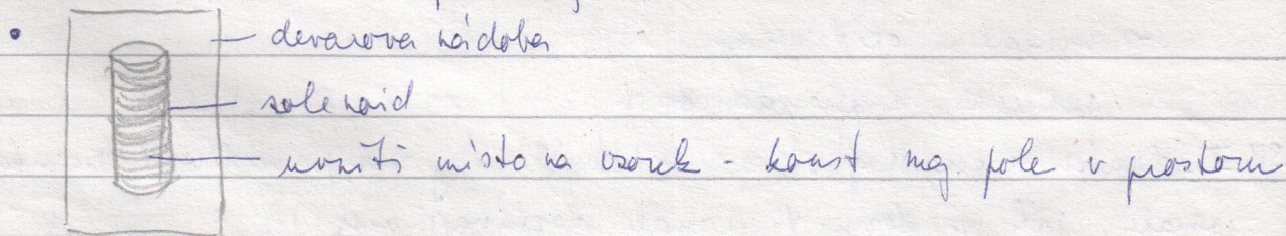 devarova nádoba
solenoid
uvnitř místo na vzorek - konst mg. pole v prostoru